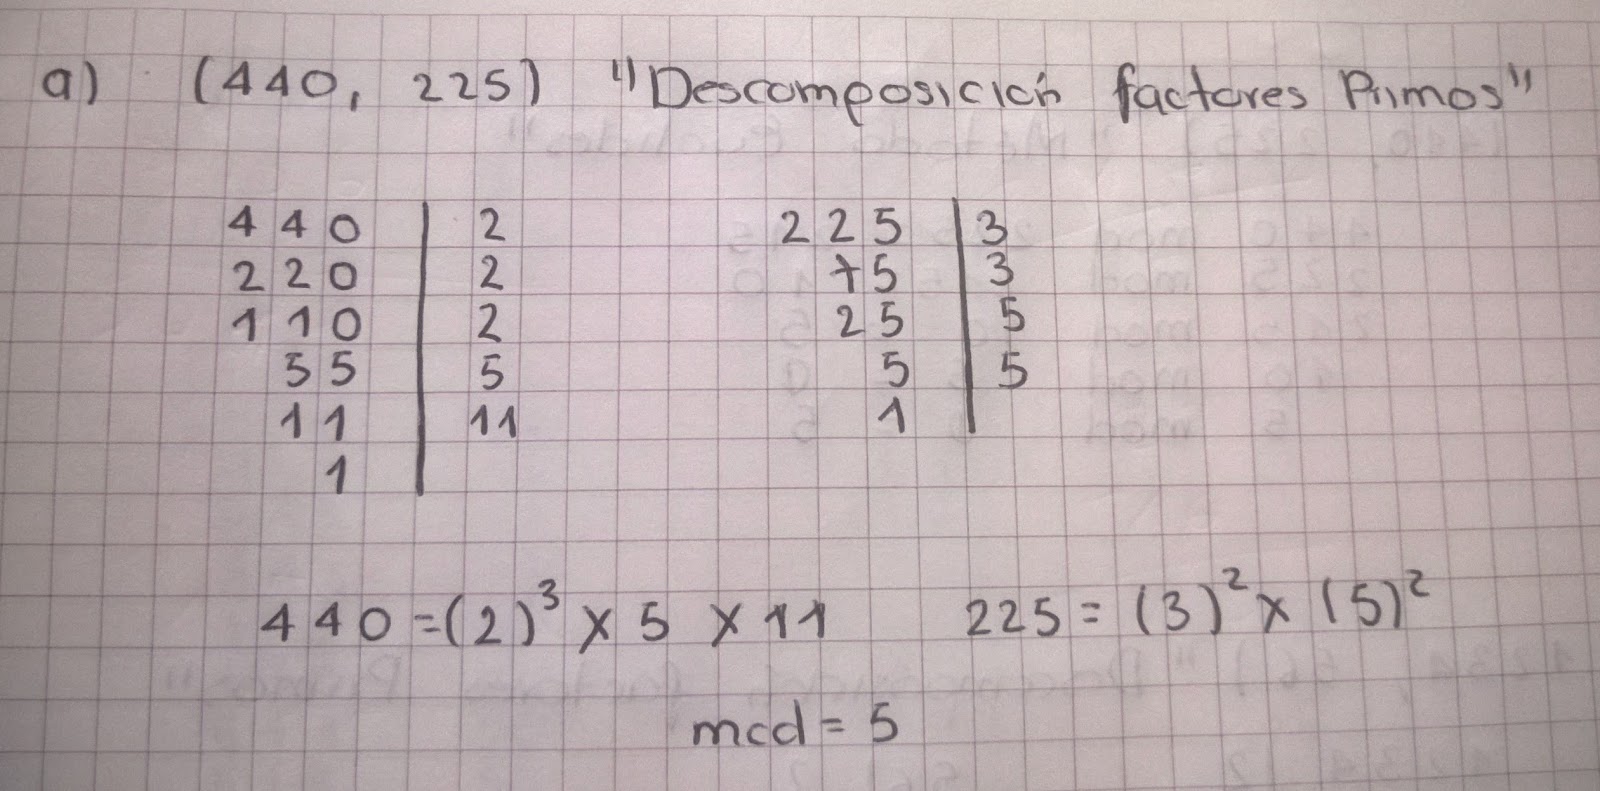 a) (440, 225) "Descomposición factores Primos"
440 | 2
220 | 2
110 | 2
55 | 5
11 | 11
1 |
225 | 3
75 | 3
25 | 5
5 | 5
1 |
440 = (2)³ x 5 x 11
225 = (3)² x (5)²
mcd = 5